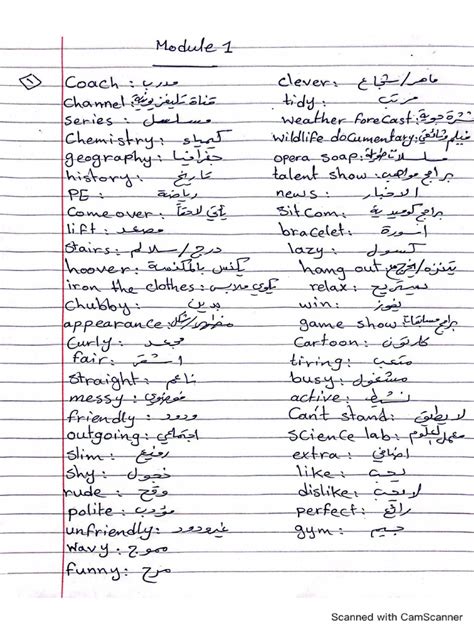 Module 1
1
Coach : مدرب
Channel : قناة تليفزيونية
series : مسلسل
Chemistry : كيمياء
geography : جغرافيا
history : تاريخ
PE : رياضة
Come over : يأتي لاحقاً
lift : مصعد
Stairs : درج / سلالم
hoover : يكنس بالمكنسة
iron the clothes : يكوي ملابس
Chubby : بدين
appearance : مظهر / شكل
Curly : مجعد
fair : اشقر
Straight : ناعم
messy : فوضوي
friendly : ودود
outgoing : اجتماعي
Slim : رفيع
Shy : خجول
rude : وقح
polite : مؤدب
unfriendly : غير ودود
wavy : مموج
funny : مرح
clever : ماهر / شجاع
tidy : مرتب
weather foreCast : نشرة جوية
wildlife documentary : فيلم وثائقي
opera soap : مسلسلات
talent show : برامج مواهب
news : الاخبار
SitCom : برامج كوميدية
bracelet : اسورة
lazy : كسول
hang out : يتنزه /
relax : يستريح
win : يفوز
game show : برامج مسابقات
Cartoon : كارتون
tiring : متعب
busy : مشغول
active : نشيط
Can't stand : لا يطيق
SCience lab : معمل العلوم
extra : اضافي
like : يحب
dislike : لا يحب
perfect : رائع
gym : جيم
Scanned with CamScanner